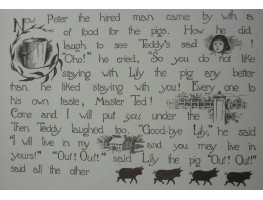 Now Peter the hired man came by with a
of food for the pigs. How he did
laugh to see Teddy's said
"Oho!" he cried, "So you do not like
staying with Lily the pig any better
than he liked staying with you! Every one to
his own taste, Master Ted!
Come and I will put you under the
Then Teddy laughed too. "Good-bye Lily," he said
"I will live in my and you may live in
yours!" "Ouf! Ouf!" said Lily the pig "Ouf! Ouf!"
said all the other